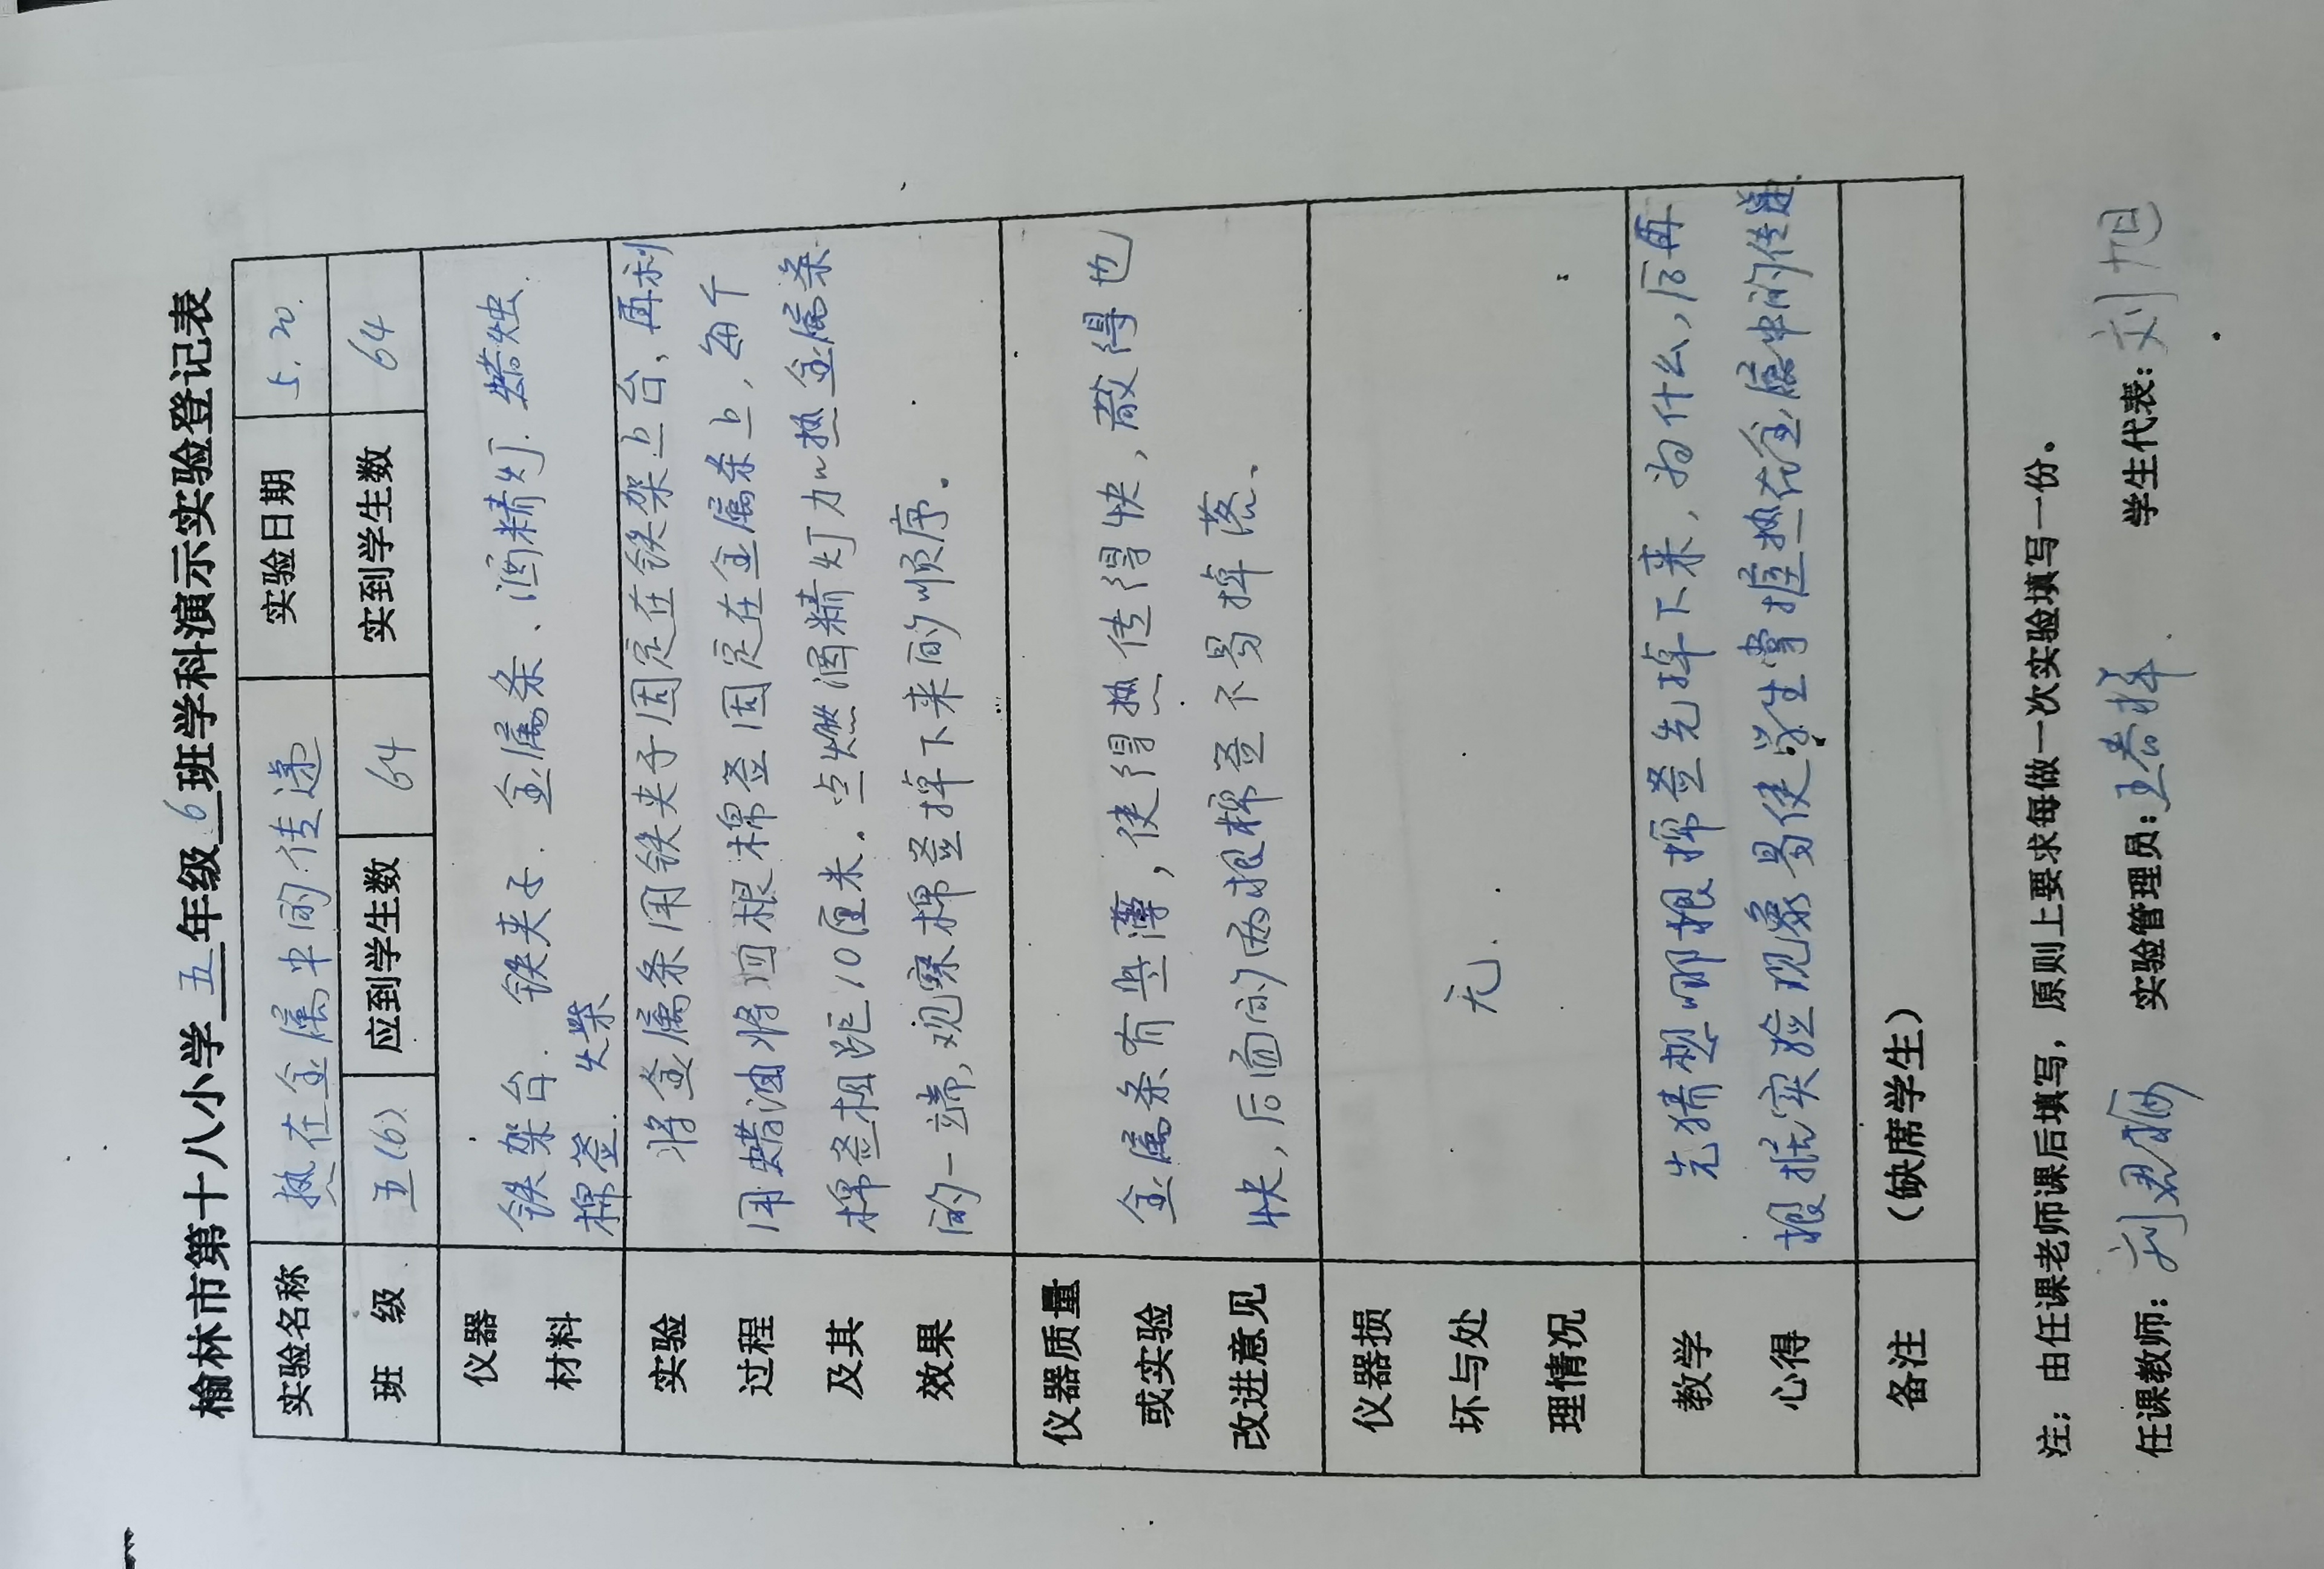 榆林市第十八小学五年级6班学科演示实验登记表
实验名称 热在金属中的传递 实验日期 5.20.
班 级 五(6) 应到学生数 64 实到学生数 64
仪器材料 铁架台. 铁夹子. 金属条、酒精灯. 蜡烛.
棉签. 火柴
实验过程及其效果 将金属条用铁夹子固定在铁架台上,再利
用蜡油将四根棉签固定在金属条上,每个
棉签相距10厘米。点燃酒精灯加热金属条
的一端,观察棉签掉下来的顺序。
仪器质量或实验改进意见 金属条有些薄,使得热传得快,散得也
快,后面的两根棉签不易掉落、
仪器损坏与处理情况 无.
教学心得 先猜想哪根棉签先掉下来,为什么,后再
根据实验现象易使学生掌握热在金属中的传递.
备注 (缺席学生)
注:由任课老师课后填写,原则上要求每做一次实验填写一份。
任课教师:刘 实验管理员:王 学生代表:刘旭